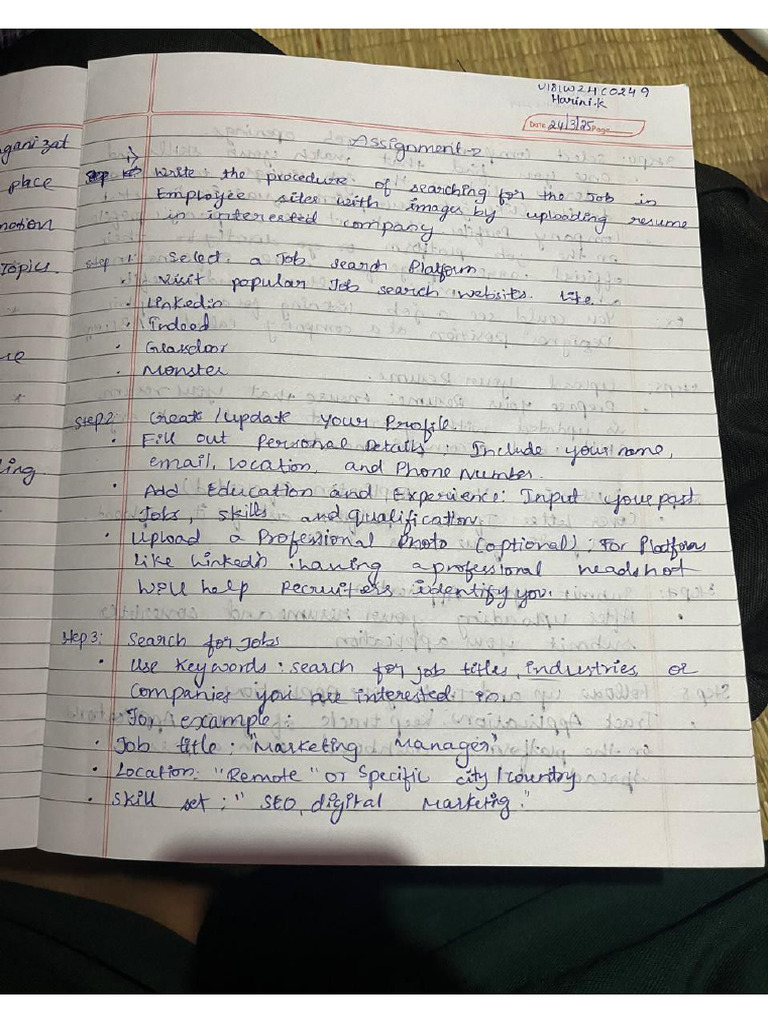 U18IW24C0249
Harini.k
Date 24/3/25 Page
Assignment-2
1>
Write the procedure of searching for the Job in
Employee sites with images by uploading resume
in interested company
Step 1: Select a Job search Platform
• Visit popular Job search websites like
• Linkedin
• Indeed
• Glassdoor
• Monster
Step 2: Create / update your Profile
• Fill out Personal Details: Include your name,
email, location, and Phone Number.
• Add Education and Experience: Input your past
Jobs, skills and qualification
• Upload a Professional Photo (optional): For Platforms
like Linkedin having a professional headshot
will help Recruiters identify you.
Step 3: Search for Jobs
• Use Keywords: search for job titles, industries, or
companies you are interested in.
For example:
• Job title: "Marketing Manager"
• Location: "Remote" or Specific city / country
• Skill set: "SEO, digital Marketing."
ganizat
place
motion
Topics
ing